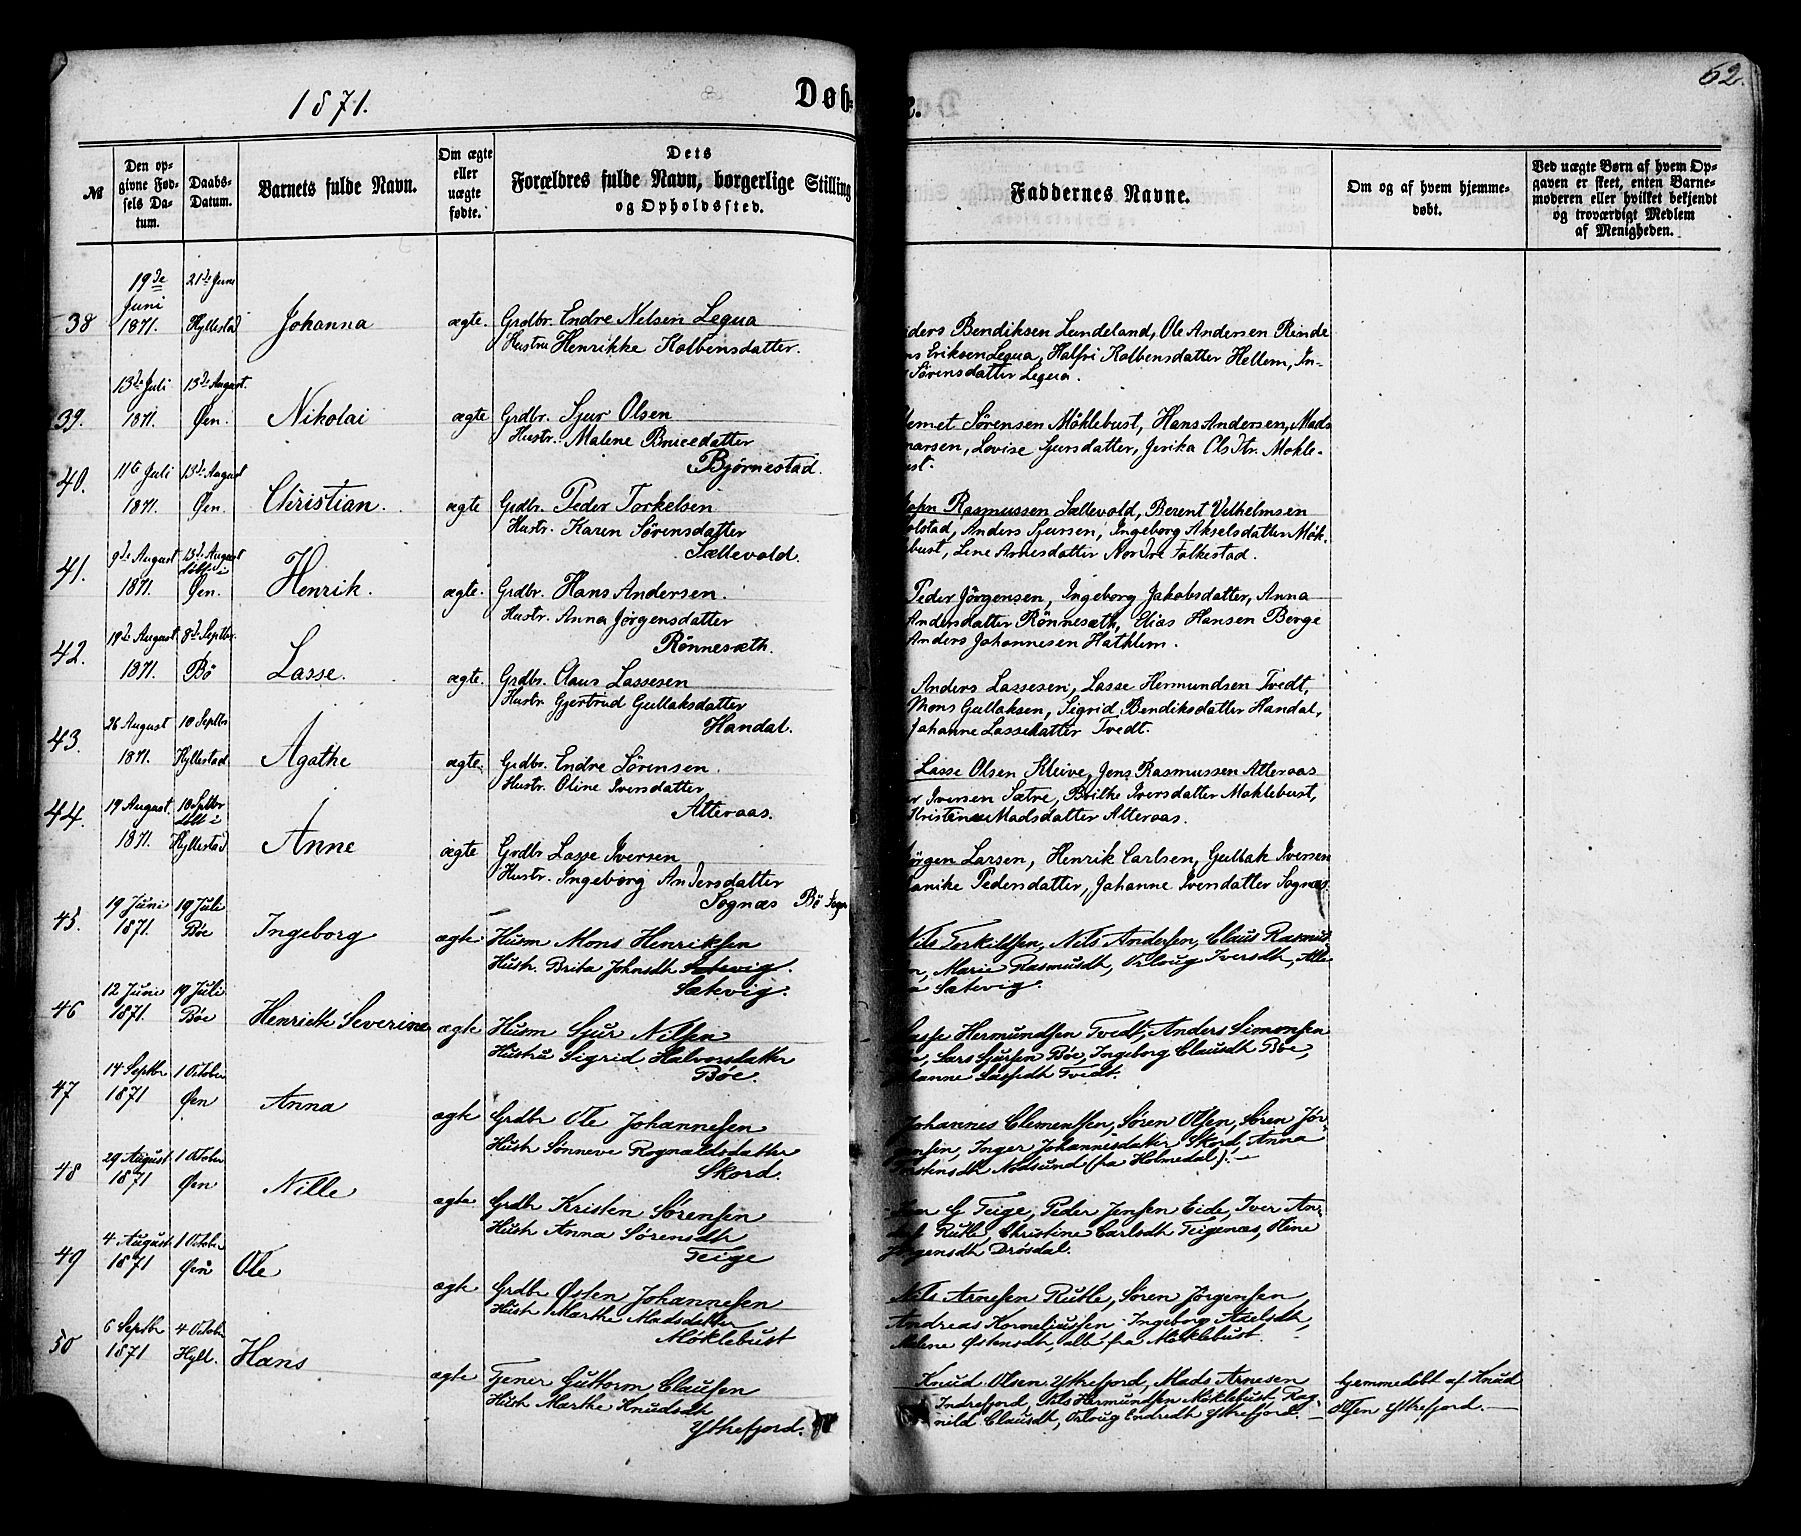 1871.
Døb-
62.
№
Den op-
givne Fød-
sels Da-
tum.
Daabs-
Datum.
Barnets fulde Navn.
Om ægte
eller
uægte
fødte.
Dets
Forældres fulde Navn, borgerlige Stilling
og Opholdssted.
Faddernes Navne.
Om og af hvem hjemme-
døbt.
Ved uægte Børn af hvem Op-
gaven er skeet, enten Barne-
moderen eller hvilket bekjendt
og troværdigt Medlem
af Menigheden.
38
19de
Juni
1871.
21de Juni
Hyllestad
Johanna
ægte.
Grdbr. Endre Nelsen Legua
Hustru Henrikke Kolbensdatter.
Bendiksen Lundeland, Ole Andersen Rinde
Eriksen Legua, Halfri Kolbensdatter Hellem, In-
Sørensdatter Legua.
39.
13de Juli
1871.
13de August.
Øen.
Nikolai
ægte
Grdbr. Sjur Olsen
Hustr. Malene Brucedatter
Bjørnestad.
Sørensen Møklebust, Hans Andersen, Mads
Lovise Sjursdatter, Jerika Olsdtr. Mokle-
bust.
40.
11te Juli
1871.
13de August
Øen.
Christian.
ægte
Grdbr. Peder Torkelsen
Hustr. Karen Sørensdatter
Sællevold.
John Rasmussen Sællevold, Berent Vilhelmsen
Anders Sjursen, Ingeborg Akselsdatter Møk-
bust, Lene Arnesdatter Nordre Falkestad.
41.
9de August
1871.
13de August
døbt i
Øen.
Henrik.
ægte.
Grdbr. Hans Andersen.
Hustr. Anna Jørgensdatter
Rönnesæth.
Peder Jörgensen, Ingeborg Jakobsdatter, Anna
Andersdatter Rönnesæth, Elias Hansen Berge
Anders Johannesen Hathlem.
42.
19de August
1871.
8de Septbr.
Bö
Lasse.
ægte.
Grdbr. Claus Lassesen
Hustr. Gjertrud Gullaksdatter
Handal.
Anders Lassesen, Lasse Hermundsen Tvedt,
Mons Gullaksen, Sigrid Bendiksdatter Handal,
Johanne Lassedatter Tvedt.
43.
26 August
1871.
10 Septbr
Hyllestad
Agathe
ægte.
Grdbr. Endre Sørensen.
Hustr. Oline Iversdatter
Atteraas.
Lasse Olsen Kleive, Jens Rasmussen Atteraas
Iversen Sætre, Brilke Iversdatter Moklebust,
Kristine Madsdatter Alteraas.
44.
19 August
1871.
10 Septbr
døbt i
Hyllestad
Anne
ægte
Grdbr Lasse Iversen
Hustr. Ingeborg Andersdatter
Sognæs Bö Sogn
Jörgen Larsen, Henrik Carlsen, Gullak Iversen
Pedersdatter, Johanne Iversdatter Sognæs.
45.
19 Juni
1871.
19 Juli
Bøe
Ingeborg
ægte
Husm Mons Henriksen
Hustr. Brita Johnsdtr Sætevig.
Sætevig.
Nils Torkildsen, Nils Andersen, Claus Rasmus-
Marie Rasmusdt, Orloug Iversdtr, Alle
Sætevig.
46
12 Juni
1871.
19 Juli
Bøe
Henriette Severine
ægte
Husm Sjur Nilsen
Hustru Sigrid Halvorsdatter
Bøe.
Lasse Hermundsen Tvedt, Anders Simonsen
Lars Sjursen Bøe, Ingeborg Clausdtr Bøe,
Johanne Lassedtr Tvedt.
47
14 Septbr
1871
1 October
Øen
Anna
ægte
Grdbr Ole Johannesen
Hustr Sönneve Rognaldsdatter
Skord.
Johannes Clementsen, Søren Olsen, Søren Jør-
gensen, Inger Johannesdatter Skord, Anna
Nødsund (fra Holmedal).
48
29 August
1871
1 October
Øen
Nille
ægte
Grdbr Kristen Sørensen
Hustr Anna Sørensdtr
Teige
G Teige, Peder Jensen Eide, Iver An-
Rutle, Christine Carlsdtr Teigenæs, Oline
Jørgensdtr Drøsdal.
49
4 August
1871
1 October
Øen
Ole
ægte
Grdbr Østen Johannesen
Hustr Marthe Madsdatter
Møklebust
Nils Arnesen Rutle, Søren Jørgensen
Andreas Korneliussen Ingeborg Axelsdtr,
Malene Østensdtr, alle fra Møklebust.
50
6 Septbr
1871
4 October
Hyll.
Hans
ægte
Tjener Guttorm Clausen
Hustr Marthe Knudsdtr
Yttrefjord.
Knud Olsen Yttrefjord, Mads Arnesen
Indrefjord, Nils Hermundsen Møklebust, Rag-
nild Clausdtr, Orloug Endredtr Yttrefjord.
hjemmedøbt af Knud
Olsen Yttrefjord.